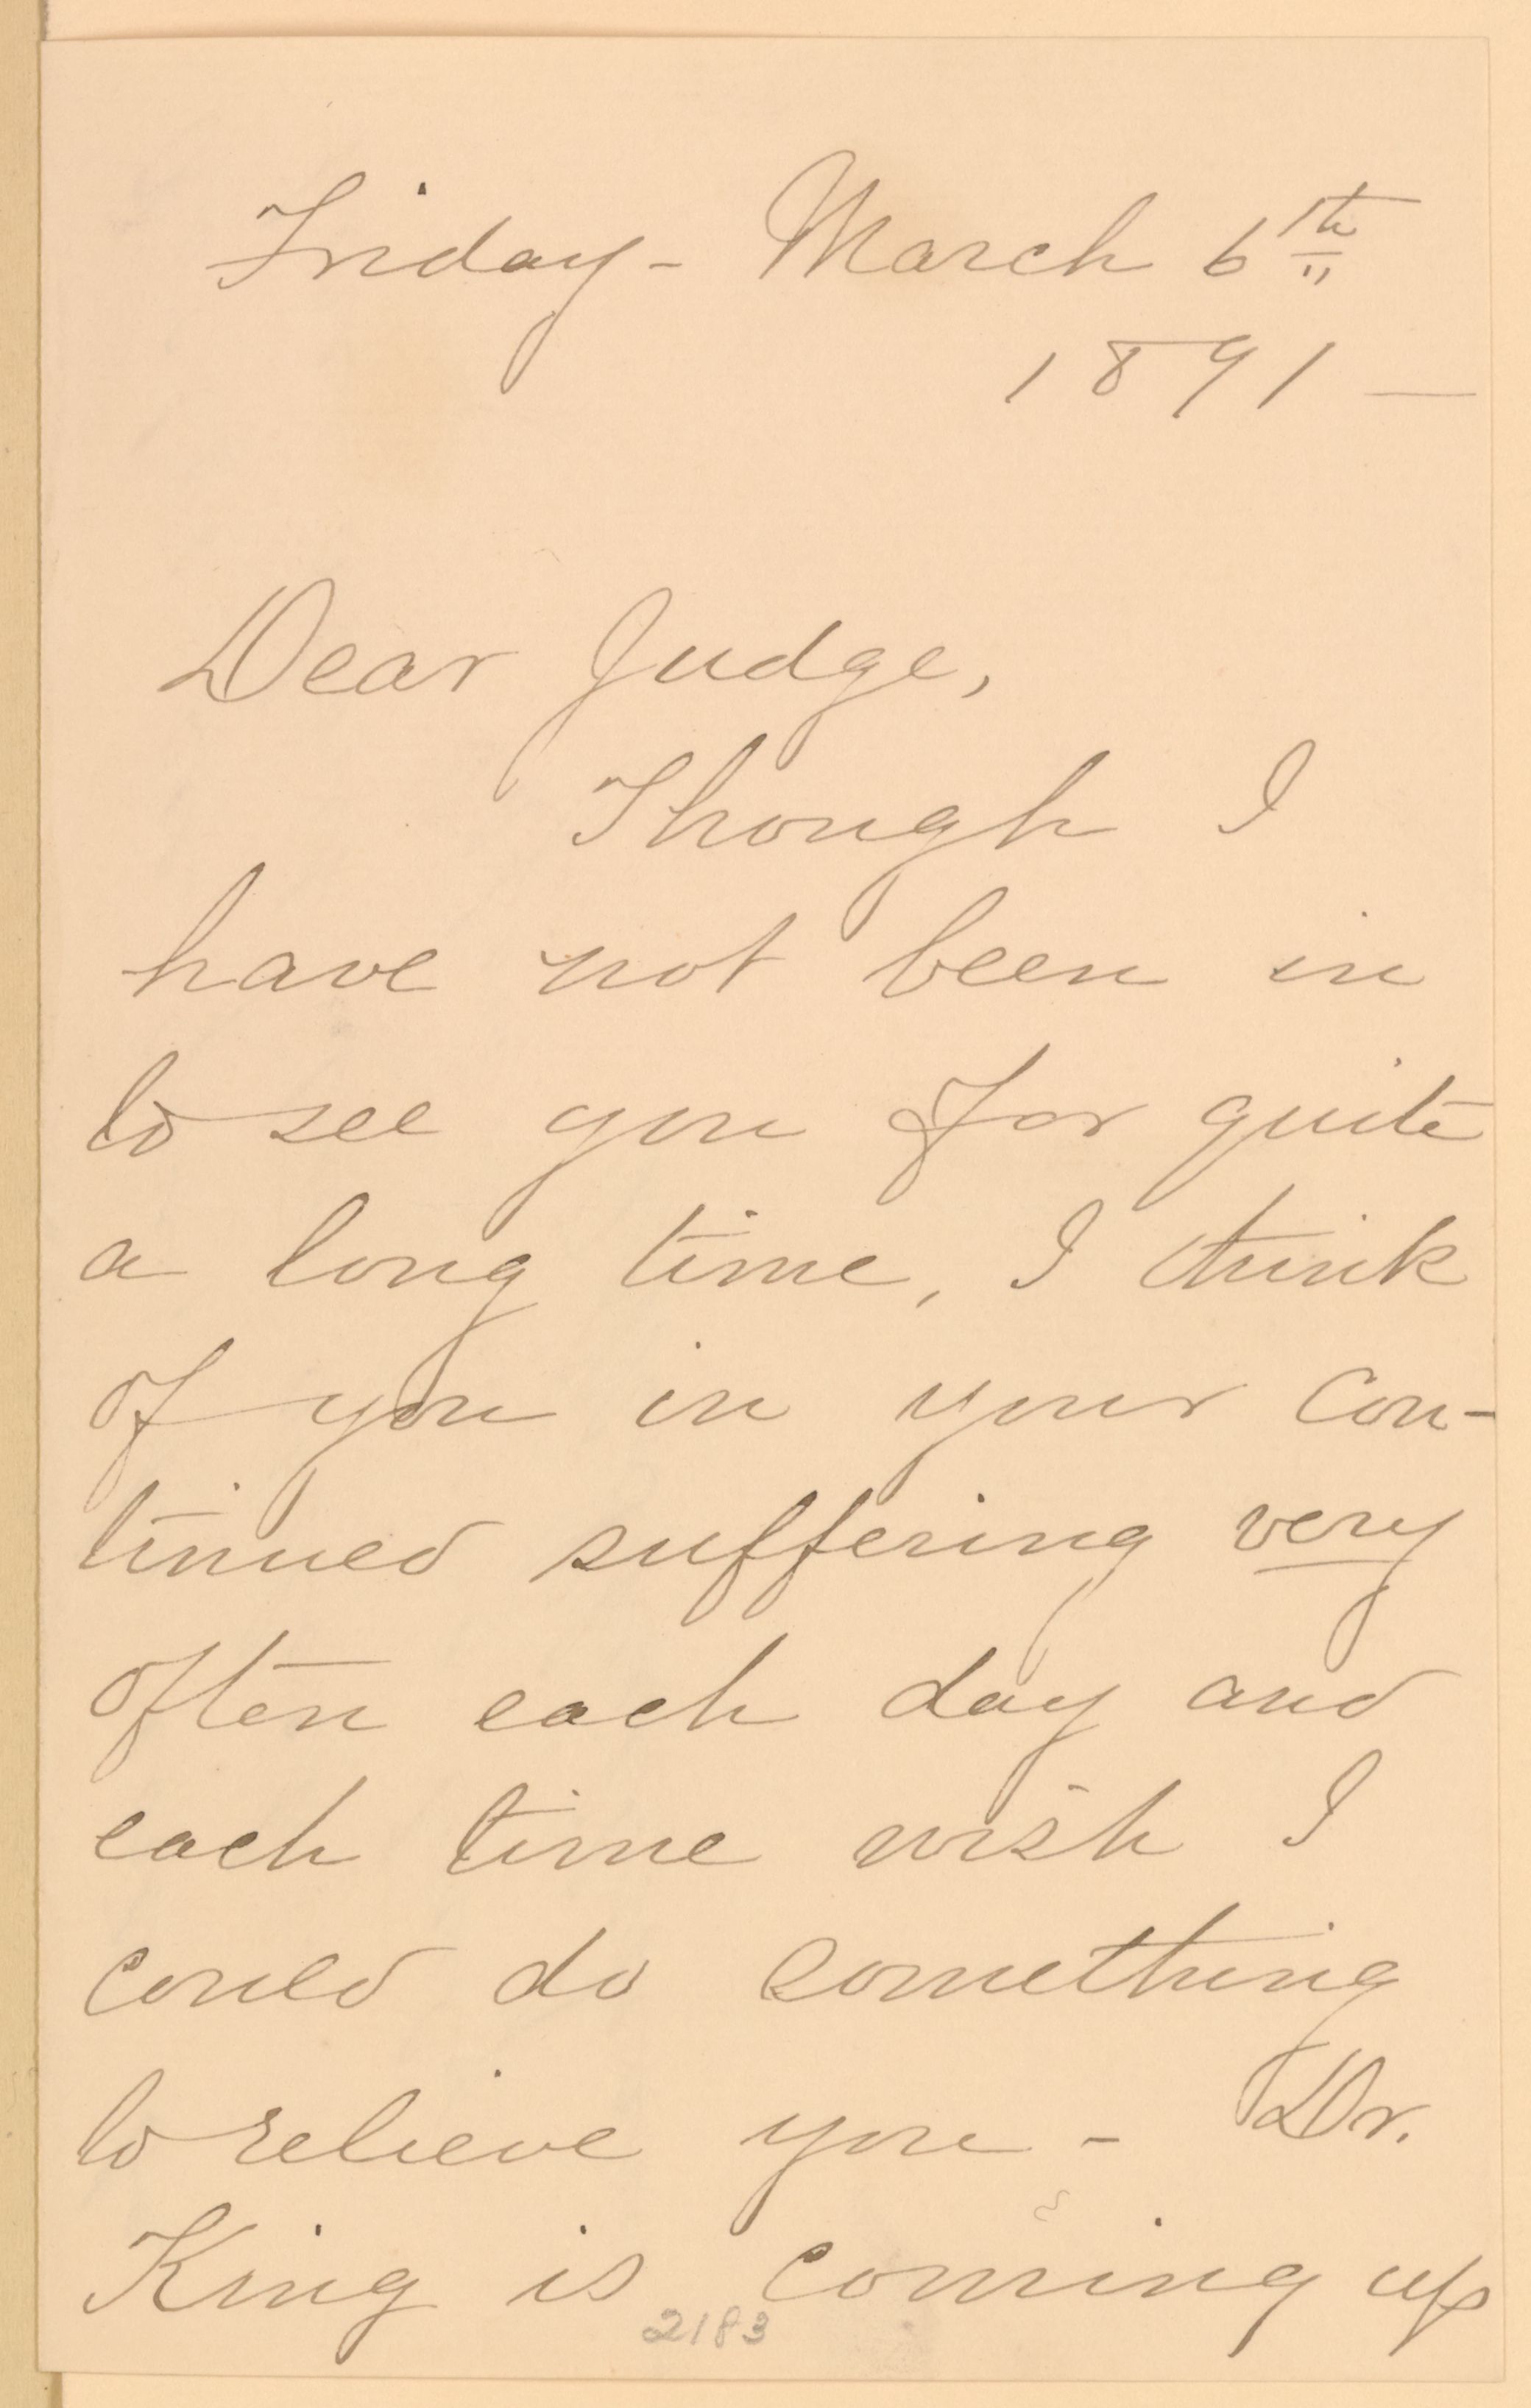 Friday - March 6th
1891 —
Dear Judge,
Though I
have not been in
to see you for quite
a long time, I think
of you in your con-
tinued suffering very
often each day and
each time wish I
could do something
to relieve you - Dr.
King is coming up
2183